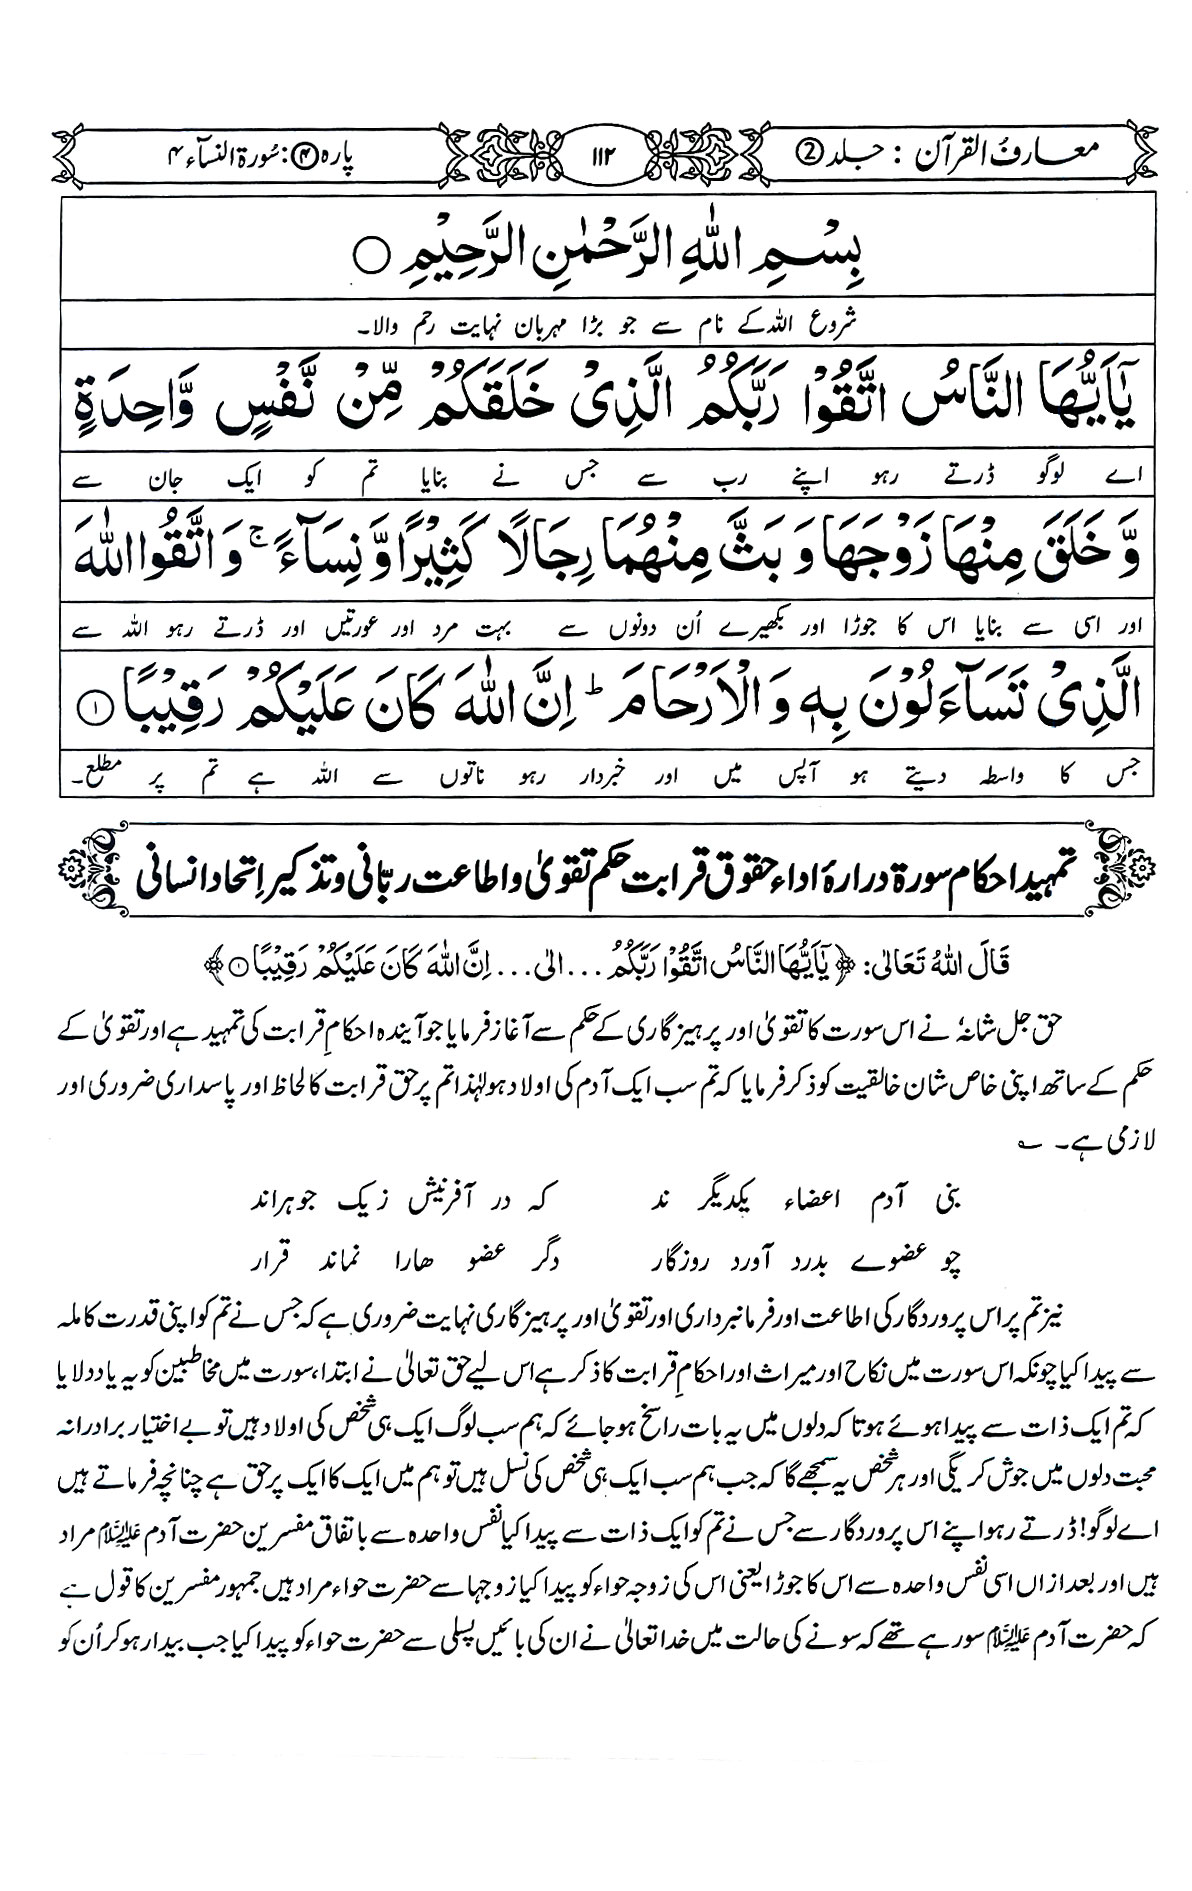 معارفُ القرآن : جلد ②
۱۱۲
پارہ ④: سُورۃ النسآء ۴
بِسْمِ اللّٰهِ الرَّحْمٰنِ الرَّحِيْمِ ○
شروع اللہ کے نام سے جو بڑا مہربان نہایت رحم والا۔
يٰٓاَيُّهَا النَّاسُ اتَّقُوْا رَبَّكُمُ الَّذِيْ خَلَقَكُمْ مِّنْ نَّفْسٍ وَّاحِدَةٍ
اے لوگو ڈرتے رہو اپنے رب سے جس نے بنایا تم کو ایک جان سے
وَّ خَلَقَ مِنْهَا زَوْجَهَا وَ بَثَّ مِنْهُمَا رِجَالًا كَثِيْرًا وَّ نِسَآءً ۚ وَ اتَّقُوا اللّٰهَ
اور اسی سے بنایا اس کا جوڑا اور بکھیرے اُن دونوں سے بہت مرد اور عورتیں اور ڈرتے رہو اللہ سے
الَّذِيْ تَسَآءَلُوْنَ بِهٖ وَ الْاَرْحَامَ ؕ اِنَّ اللّٰهَ كَانَ عَلَيْكُمْ رَقِيْبًا ①
جس کا واسطہ دیتے ہو آپس میں اور خبردار رہو ناتوں سے اللہ ہے تم پر مطلع۔
تمہید احکام سورۃ دربارۂ اداء حقوق قرابت حکم تقویٰ و اطاعت ربّانی و تذکیر اِتحاد انسانی
قَالَ اللهُ تَعَالٰى: ﴿يٰٓاَيُّهَا النَّاسُ اتَّقُوْا رَبَّكُمُ ... الى ... اِنَّ اللّٰهَ كَانَ عَلَيْكُمْ رَقِيْبًا①﴾
حق جل شانہٗ نے اس سورت کا تقویٰ اور پرہیزگاری کے حکم سے آغاز فرمایا جو آیندہ احکامِ قرابت کی تمہید ہے اور تقویٰ کے
حکم کے ساتھ اپنی خاص شان خالقیت کو ذکر فرمایا کہ تم سب ایک آدم کی اولاد ہو لہٰذا تم پر حق قرابت کا لحاظ اور پاسداری ضروری اور
لازمی ہے۔ ؎
بنی آدم اعضاء یکدیگر ند کہ در آفرنیش زیک جوہراند
چو عضوے بدرد آورد روزگار دگر عضو ھارا نماند قرار
نیز تم پر اس پروردگار کی اطاعت اور فرمانبرداری اور تقویٰ اور پرہیزگاری نہایت ضروری ہے کہ جس نے تم کو اپنی قدرت کاملہ
سے پیدا کیا چونکہ اس سورت میں نکاح اور میراث اور احکامِ قرابت کا ذکر ہے اس لیے حق تعالیٰ نے ابتداء سورت میں مخاطبین کو یہ یاد دلایا
کہ تم ایک ذات سے پیدا ہوئے ہو تا کہ دلوں میں یہ بات راسخ ہو جائے کہ ہم سب لوگ ایک ہی شخص کی اولاد ہیں تو بے اختیار برادرانہ
محبت دلوں میں جوش کریگی اور ہر شخص یہ سمجھے گا کہ جب ہم سب ایک ہی شخص کی نسل ہیں تو ہم میں ایک کا ایک پر حق ہے چنانچہ فرماتے ہیں
اے لوگو! ڈرتے رہو اپنے اس پروردگار سے جس نے تم کو ایک ذات سے پیدا کیا نفس واحدہ سے باتفاق مفسرین حضرت آدم علیہ السلام مراد
ہیں اور بعد ازاں اسی نفس واحدہ سے اس کا جوڑا یعنی اس کی زوجہ حواء کو پیدا کیا زوجہا سے حضرت حواء مراد ہیں جمہور مفسرین کا قول ہے
کہ حضرت آدم علیہ السلام سو رہے تھے کہ سونے کی حالت میں خدا تعالیٰ نے ان کی بائیں پسلی سے حضرت حواء کو پیدا کیا جب بیدار ہو کر اُن کو